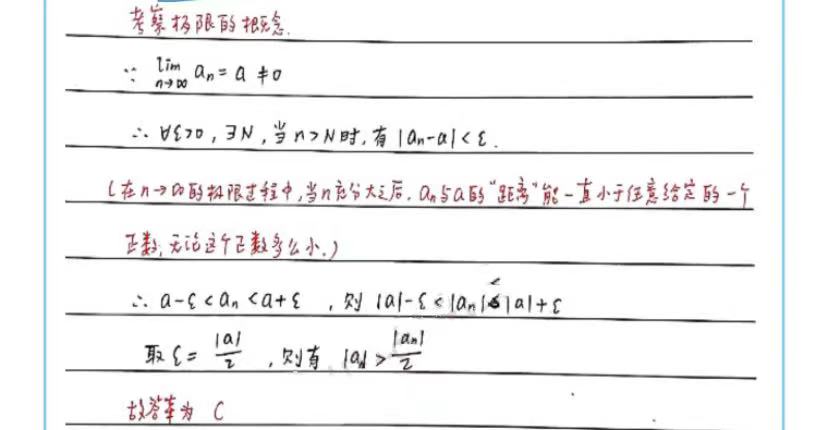 考察极限的概念.
∵ lim n→∞ an = a ≠0
∴ ∀ε>0, ∃N, 当n>N时, 有|an-a|<ε.
(在n→∞的极限过程中,当n充分大之后, an与a的“距离”能一直小于任意给定的一个
正数,无论这个正数多么小.)
∴ a-ε<an<a+ε ,则 |a|-ε<|an|<|a|+ε
取ε= |a|/2 ,则有 |a|> |an|/2
故答案为 C